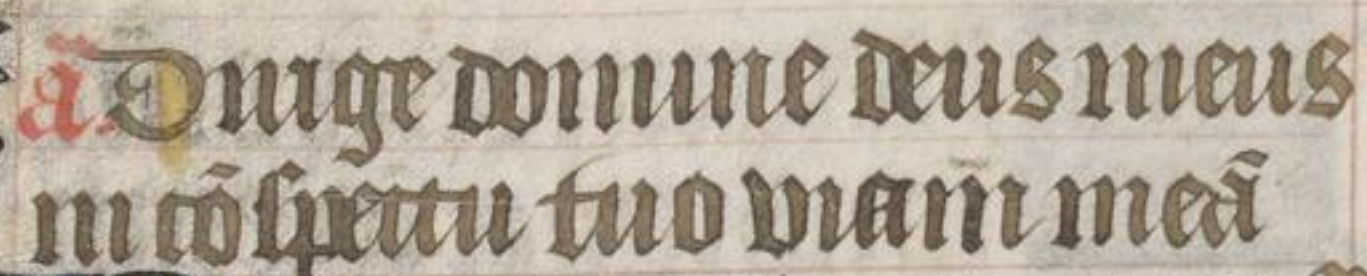 a. Dirige domine deus meus
in cōspectu tuo viam meā